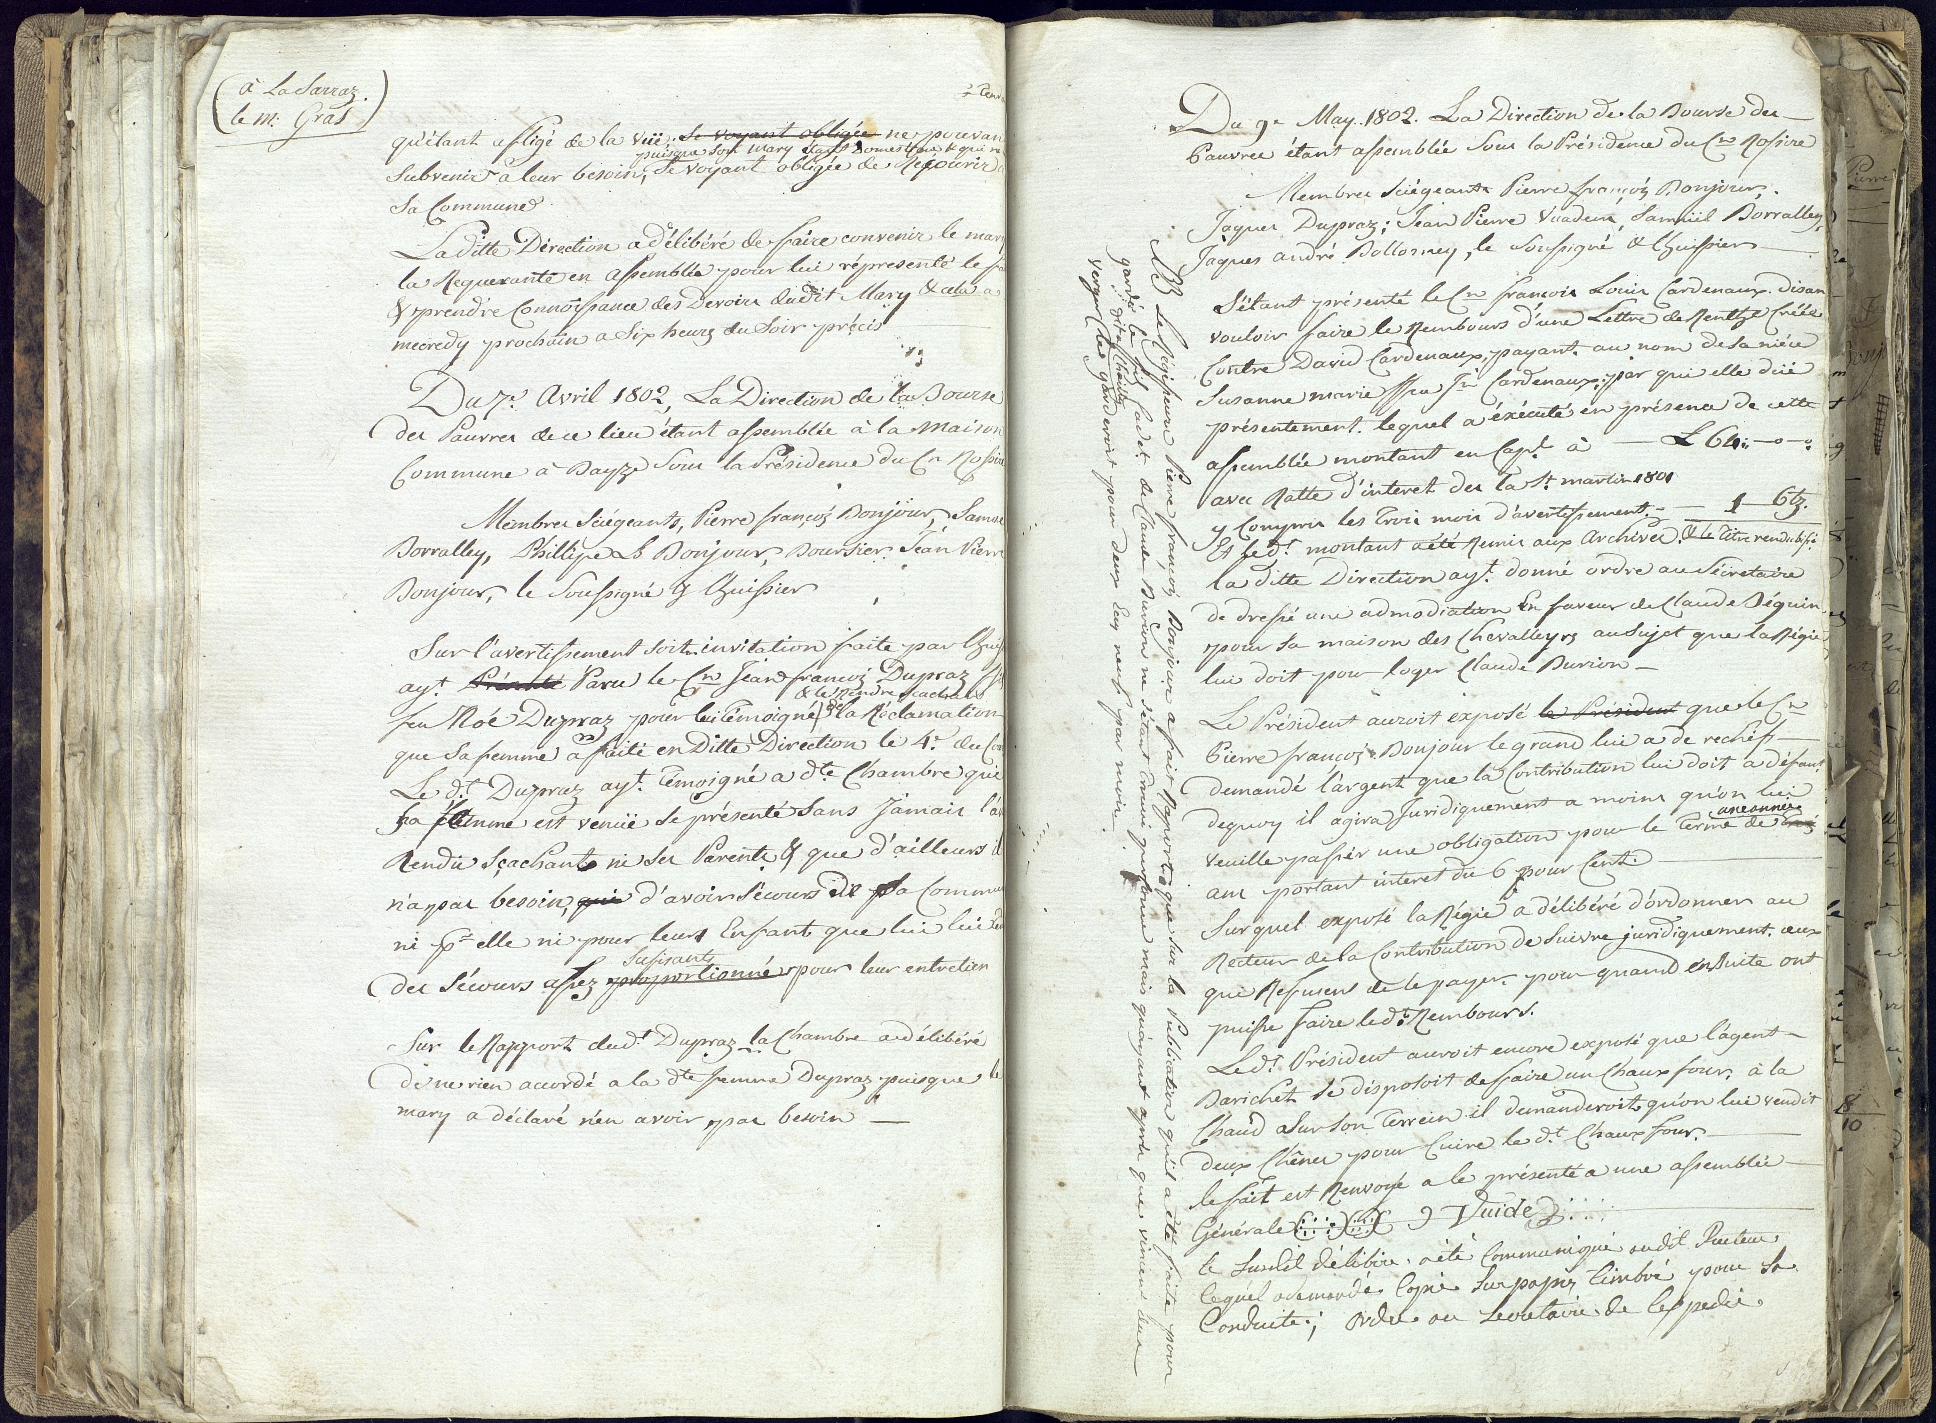 à La Sarraz.
le m. Gras
qu'étant affligé de la vüe, se voyant obligée ne pouvan
puisque son mary étant Domestique & qui ne
Subvenir à leur bésoin, Se voyant obligée de Récourir
Sa Commune
La ditte Diréction a délibéré de faire convenir le mary
la Requerante en assemblée pour lui répresenté le
& prendre Connoissance des Devoirs dudit Mary & cela a
mecredy prochain a Six heurs du Soir précis
Du 7e. Avril 1802, La Direction de la Bourse
des Pauvres de ce lieu étant assemblée à la Maison
Commune à Bayze Sous la Présidence du Cn Rossire
Membres Sciégeants, Pierre françoiz Bonjour, Samue
Borralley, Phillipe Ls Bonjour, Boursier. Jean Pierre
Bonjour, le Soussigné & Lhuissier
Sur l'avertissement soit invitation faite par Lhuiss
ayt. Présenté Paru le Cn Jean françoiz Dupraz
& le Rendre scachant
feu Noé Dupraz pour lui Témoigné de la Réclamation
que Sa femme a faite en Ditte Direction le 4e. du Con
Le dt. Dupraz ayt. Témoigné a dte Chambre que
Sa femme est venüe Se présenté Sans Jamais l'av
Rendu Sçachant ni Ses Parents & que d'ailleurs il
n'a pas besoin, qui d'avoir Sécours de Sa Commune
ni pr elle ni pour leurs Enfant que lui lui
Sufisants
des Sécours assez proportionné pour leur entretien
Sur le Rapport dudt. Dupraz la Chambre a délibéré
de ne rien acordé a la dte femme Dupraz puisque le
mary a déclaré n'en avoir pas besoin
Du 9e May. 1802. La Direction de la Bourse des
Pauvres étant assemblée Sous la Présidence du Cn Rossire
Membres Sciégeants Pierre françoiz Bonjour,
Jaques Dupraz; Jean Pierre Vuadens, Samüil Borralley,
Jaques andré Bollosney, le Soussigné & Lhuissier
S'étant présenté le Cn françois Louis Cardenaux. disan
vouloir faire le Rembours d'une Lettre de Rentze Créée
Contre David Cardenaux, payant. au nom de Sa niéce
Susanne marie ffeu Jn Cardenaux, par qui elle düe
présentement. lequel a éxécuté en présence de cette
assemblée montant en Capl. à — L 64 — o — o
avec Ratte d'interet des la St. martin 1801
y Compris les Trois mois d'avertissement. — 1 — 6 tz.
Et le dt. montant a été Remis aux Archives. & le Titre rendu biffé
la ditte Diréction ayt. donné ordre au Sécretaire
de dressé une admodiation En faveur de Claude Béguin
pour Sa maison des Chevalleyrs au Sujet que la Régie
lui doit pour loger Claude Burion —
Le Président auroit exposé le Président que le Cn
Pierre françoiz Bonjour le grand lui a de rechéf
demandé l'argent que la Contribution lui doit a défaut
dequoy il agira Juridiquement a moins qu'on lui
une année
veuille passér une obligation pour le Terme de
ans portant interet du 6 pour Cent.
Sur quel exposé la Régie a délibéré d'ordonner au
Recteur de la Contribution de Suivre juridiquement. ceux
que Refusent de le payer. pour quand énsuite ont
puisse faire le dt. Rembours.
Le dt. Président auroit encore exposé que l'agent
Barichet Sé disposoit de faire un Chaux four, à la
Chaud Sur Son Terrein il demanderoit qu'on lui vendit
deux Chênes pour Cuire le dt. Chaux four.
le fait est Renvoyé a le présenté a une assemblée
Générale Vuide
le Susdit délibéré, a été Communiqué audit Recteur
lequél a demandé Copie Sur papier timbré pour Sa
Conduite; ordre au Secretaire de l'expedié.
NB Le Régisseur Pierre françoiz Bonjour a fait Rapport que Sur la Publication qu'il a été faite pour
gardés le fils Cadet de Claude Burion ne s'étant trouvé personne mais qu'ayant apris que vincent
dite Chaillet
Verguet le garderoit pour deux Ecuz neufs par mois.